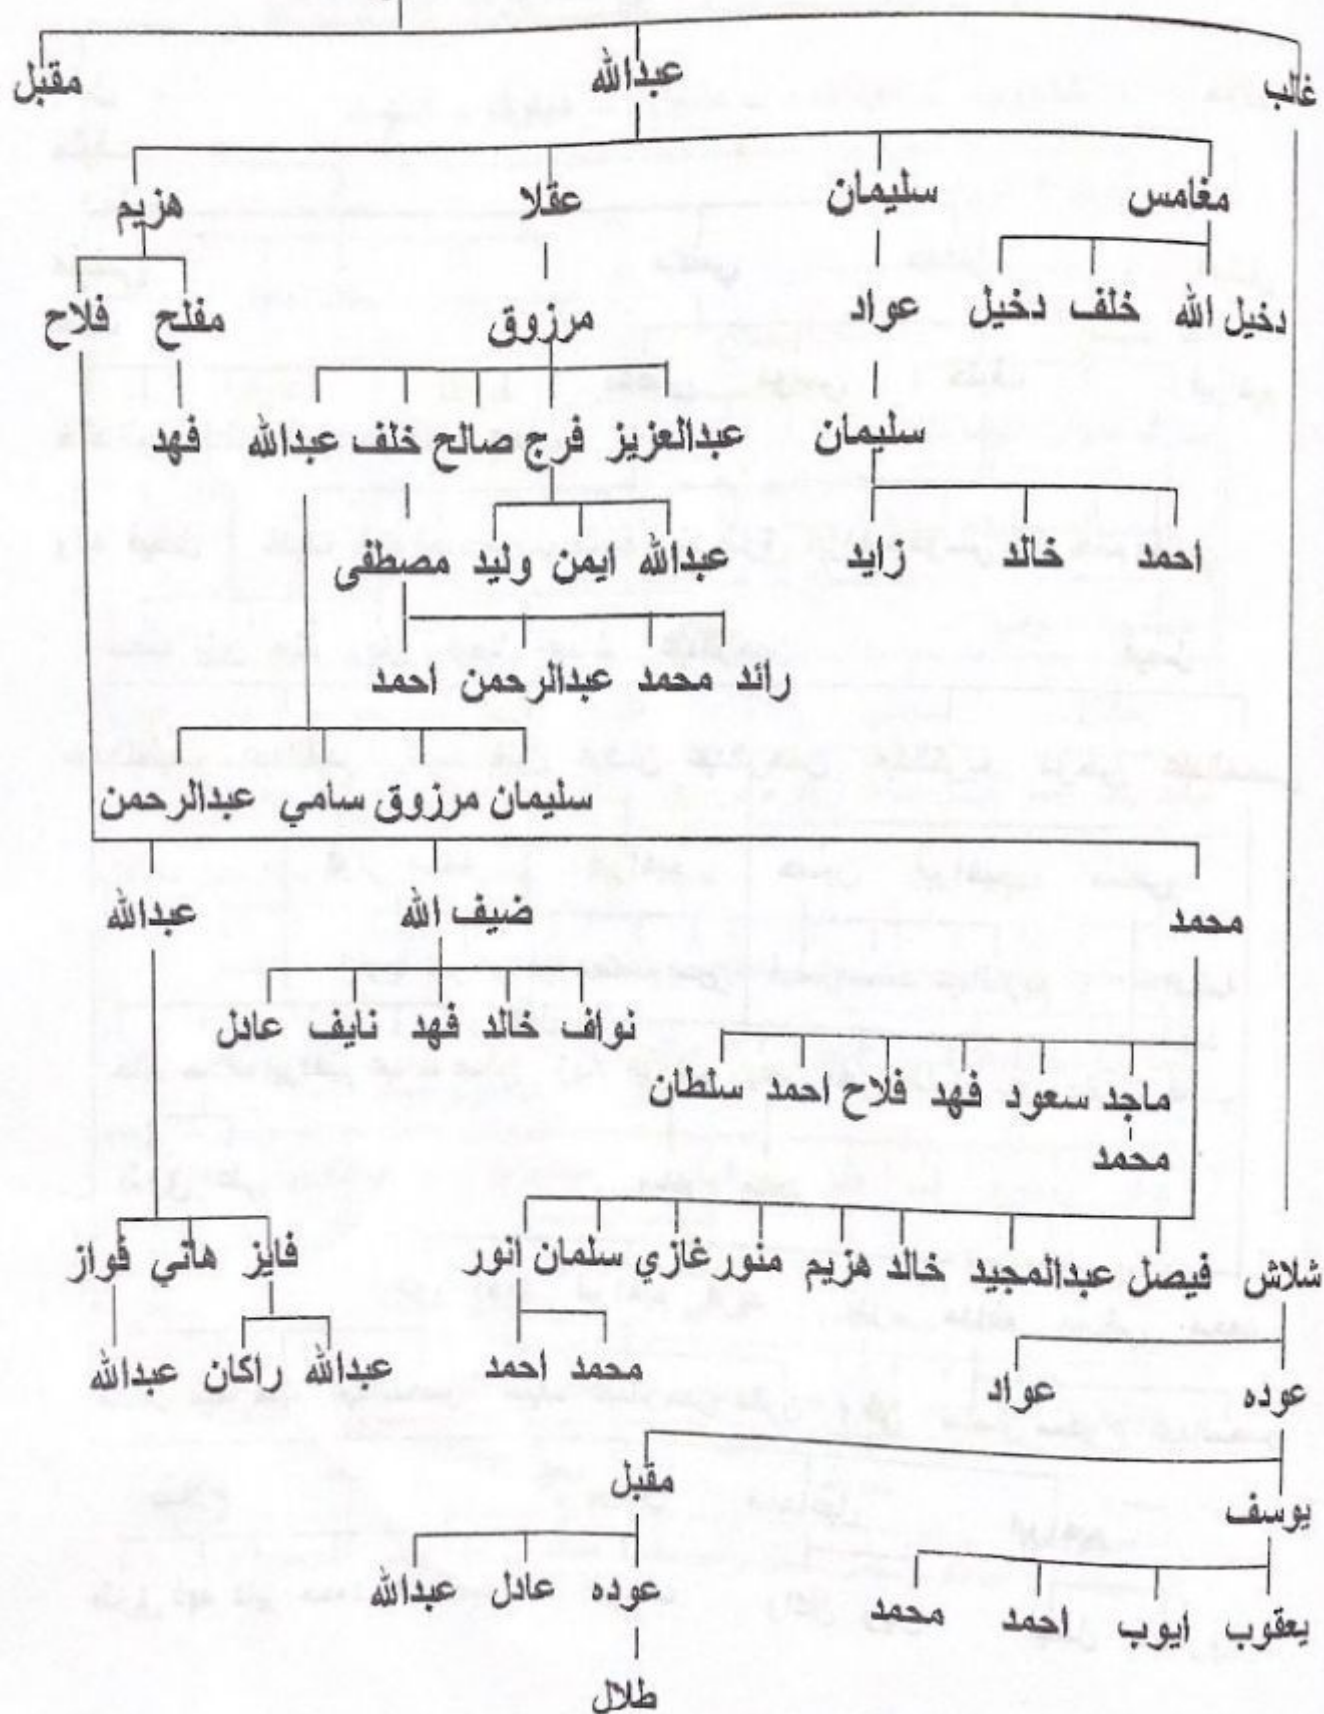 غالب عبدالله مقبل
مغامس سليمان عقلا هزيم
دخيل الله خلف دخيل عواد مرزوق مفلح فلاح
سليمان عبدالعزيز فرج صالح خلف عبدالله فهد
احمد خالد زايد عبدالله ايمن وليد مصطفى
رائد محمد عبدالرحمن احمد
سليمان مرزوق سامي عبدالرحمن
محمد ضيف الله عبدالله
نواف خالد فهد نايف عادل
ماجد سعود فهد فلاح احمد سلطان
محمد
شلاش فيصل عبدالمجيد خالد هزيم منور غازي سلمان انور فايز هاني فواز
عوده عواد محمد احمد عبدالله راكان عبدالله
مقبل
يوسف
عوده عادل عبدالله
يعقوب ايوب احمد محمد
طلال